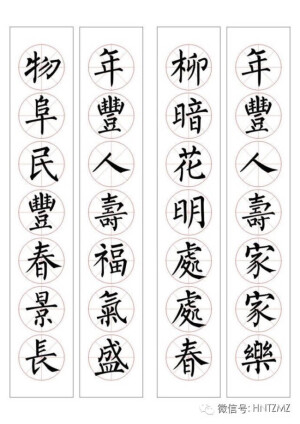 年豐人壽家家樂
柳暗花明處處春
年豐人壽福氣盛
物阜民豐春景長
微信号: HNTZMZ